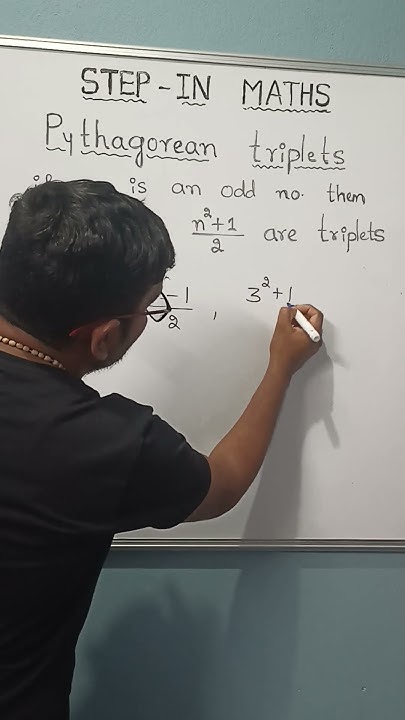 STEP-IN MATHS
Pythagorean triplets
is an odd no. them
n²+1/2 are triplets
-1/2 , 3²+1